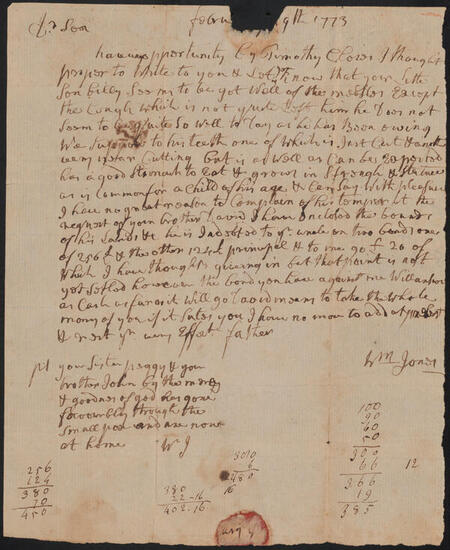 Dr Son febru 9th 1773
haveing opportunity by Timothy Clows I thought
proper to Write to you & Let you know that your Little
Son billy Seems to be got Well of the measles Except
the Cough Which is not quite Left him he Does not
Seem to be quite So Well to Day as he has Been owing
We Suppose to his teeth one of Which is Just Cut & another
very near Cutting but is as Well as Can be Expected
has a good Stomach to Eat & grows in Strength &
as is Common for a Child of his age & Can Say With pleasure
I have no great reason to Complain of his temper at the
request of your brother David I have Enclosed the bounds
of his Lands & he is Indebted to on two bonds one
of 256£ & the other 124 principel & to me 90£ 20 of
Which I have thoughts giveing in but that point is not
yet Setled however the bond you have against me Will answer
as Cash as far as it Will go & David means to take the Whole
money of you if it Sutes you I have no more to add at present
& rest yr very Affect father
Wm Jones
pt your Sister peggy & your
brother John by the mercy
& goodness of god has gone
favourably through the
Small pox and are now
at home W J
256
124
380
70
450
380
22-16
402-16
3010
6
2480
16
100
90
60
50
300
66 12
366
19
385